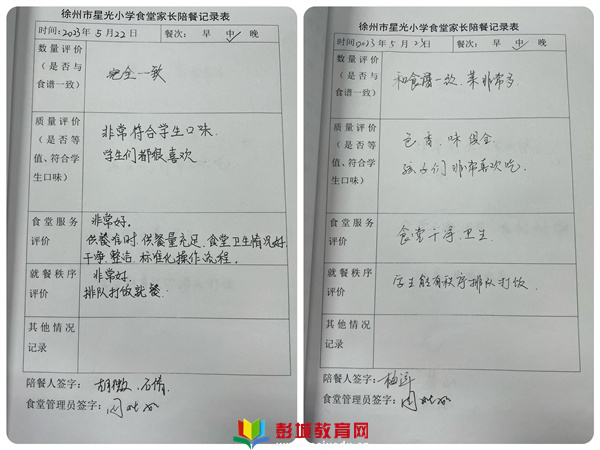 徐州市星光小学食堂家长陪餐记录表
时间:2023年5月22日 餐次: 早 中 晚
数量评价
(是否与
食谱一致)
完全一致
质量评价
(是否等
值、符合学
生口味)
非常符合学生口味.
学生们都很喜欢
食堂服务
评价
非常好。
供餐准时.供餐量充足.食堂卫生情况好.
干净.整洁.标准化操作流程.
就餐秩序
评价
非常好.
排队打饭就餐.
其他情况
记录
陪餐人签字:
食堂管理员签字:
徐州市星光小学食堂家长陪餐记录表
时间:2023年5月23日 餐次: 早 中 晚
数量评价
(是否与
食谱一致)
和食谱一致.菜非常多.
质量评价
(是否等
值、符合学
生口味)
色.香.味俱全
孩子们非常喜欢吃.
食堂服务
评价
食堂干净.卫生
就餐秩序
评价
学生能有秩序排队打饭.
其他情况
记录
陪餐人签字:
食堂管理员签字:
彭城教育网